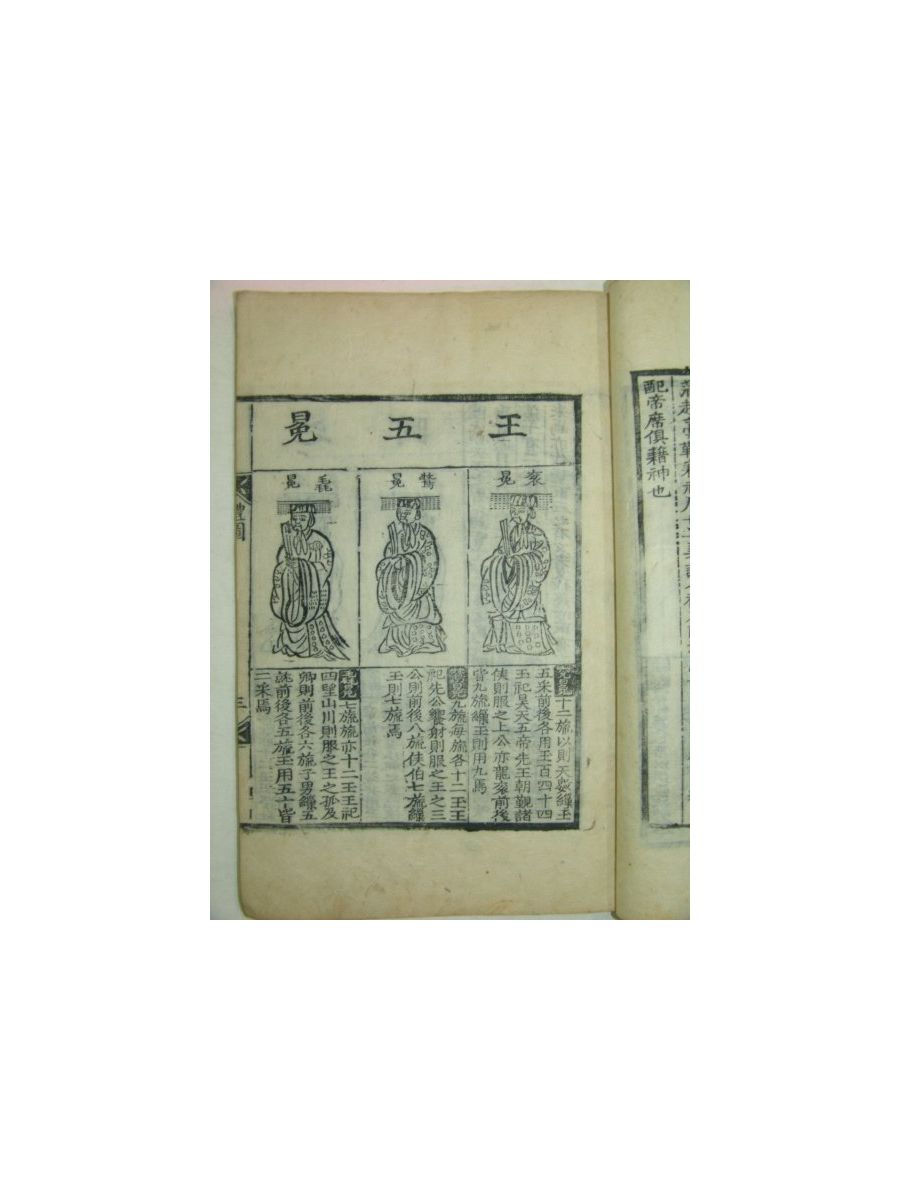 配帝席俱藉神也
王五冕
袞冕
鷩冕
毳冕
十二旒以則天數繅玉
五采前後各用玉百四十四
王祀昊天五帝先王朝觀諸
侯則服之上公亦龍袞前後
皆九旒繅玉則用九焉
九旒每旒各十二玉王
祀先公饗射則服之王之三
公則前後八旒侯伯七旒繅
玉則七旒焉
毳冕七旒旒亦十二玉王祀
四望山川則服之王之孤及
卿則前後各六旒子男繅五
就前後各五旒玉用五十皆
二采焉
禮圖
三